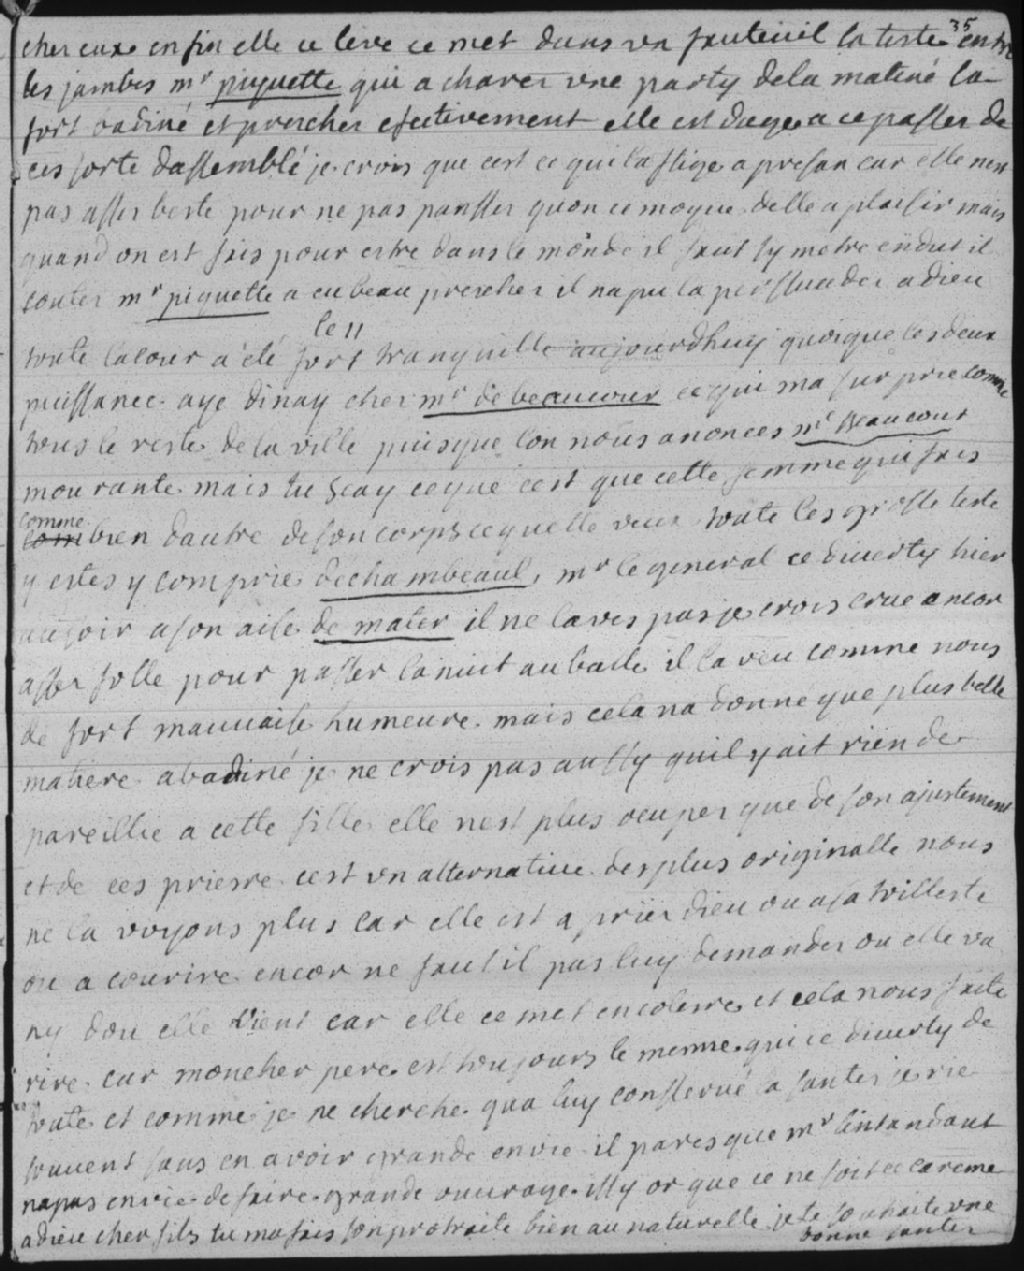 35
cher eaux enfin elle ce leve ce met dans un fauteuil la teste entre
les jambes mr piquette qui a chaver une party de la matiné la
fort badiné et prescher efectivement elle est dage a ce passer de
ces sorte dassemblé je crois que cest ce qui laflige a presan car elle nest
pas asser beste pour ne pas pansser quon ce moque delle a plaisir mais
quand on est fais pour estre dans le monde il faut sy metre endut il
couter mr piquette a eu beau prescher il na pu la perssuader adieu
le 11
toute la cour a été fort tranquille aujourdhuy quoique les deux
puissance aye dinay cher mr de beaucour ce qui ma surprie comme
tous le reste de la ville puisque lon nous anonces me Beaucour
mourante mais tu scay ce que cest que cette femme qui fais
comme bien dautre de son corps ce quelle veux toute les grosse teste
y estes y comprie dechambeaul, mr le general ce diverty hier
au soir a son aise de mater il ne laves pas je crois crue ancor
asser folle pour passer la nuit au balle il la veu comme nous
de fort mauvaise humeure mais cela na donne que plus belle
matiere a badiné je ne crois pas aussy quil y ait rien de
pareillie a cette fille elle nest plus ocuper que de son ajustement
et de ces prierre cest un alternative des plus originalle nous
ne la voyons plus car elle est a prier dieu ou a sa toilleste
ou a courire encor ne faut il pas luy demander ou elle va
ny dou elle vient car elle ce met en colerre et cela nous faite
rire car mon cher pere est toujours le mesme qui ce diverty de
toute et comme je ne cherche qua luy conservé la santer je rie
souvent sans en avoir grande envie il pares que mr lintandant
na pas envie de faire grande ouvrage issy or que ce ne soit ce careme
adieu cher fils tu ma fais son protraite bien au naturelle je te souhaite une
bonne santer